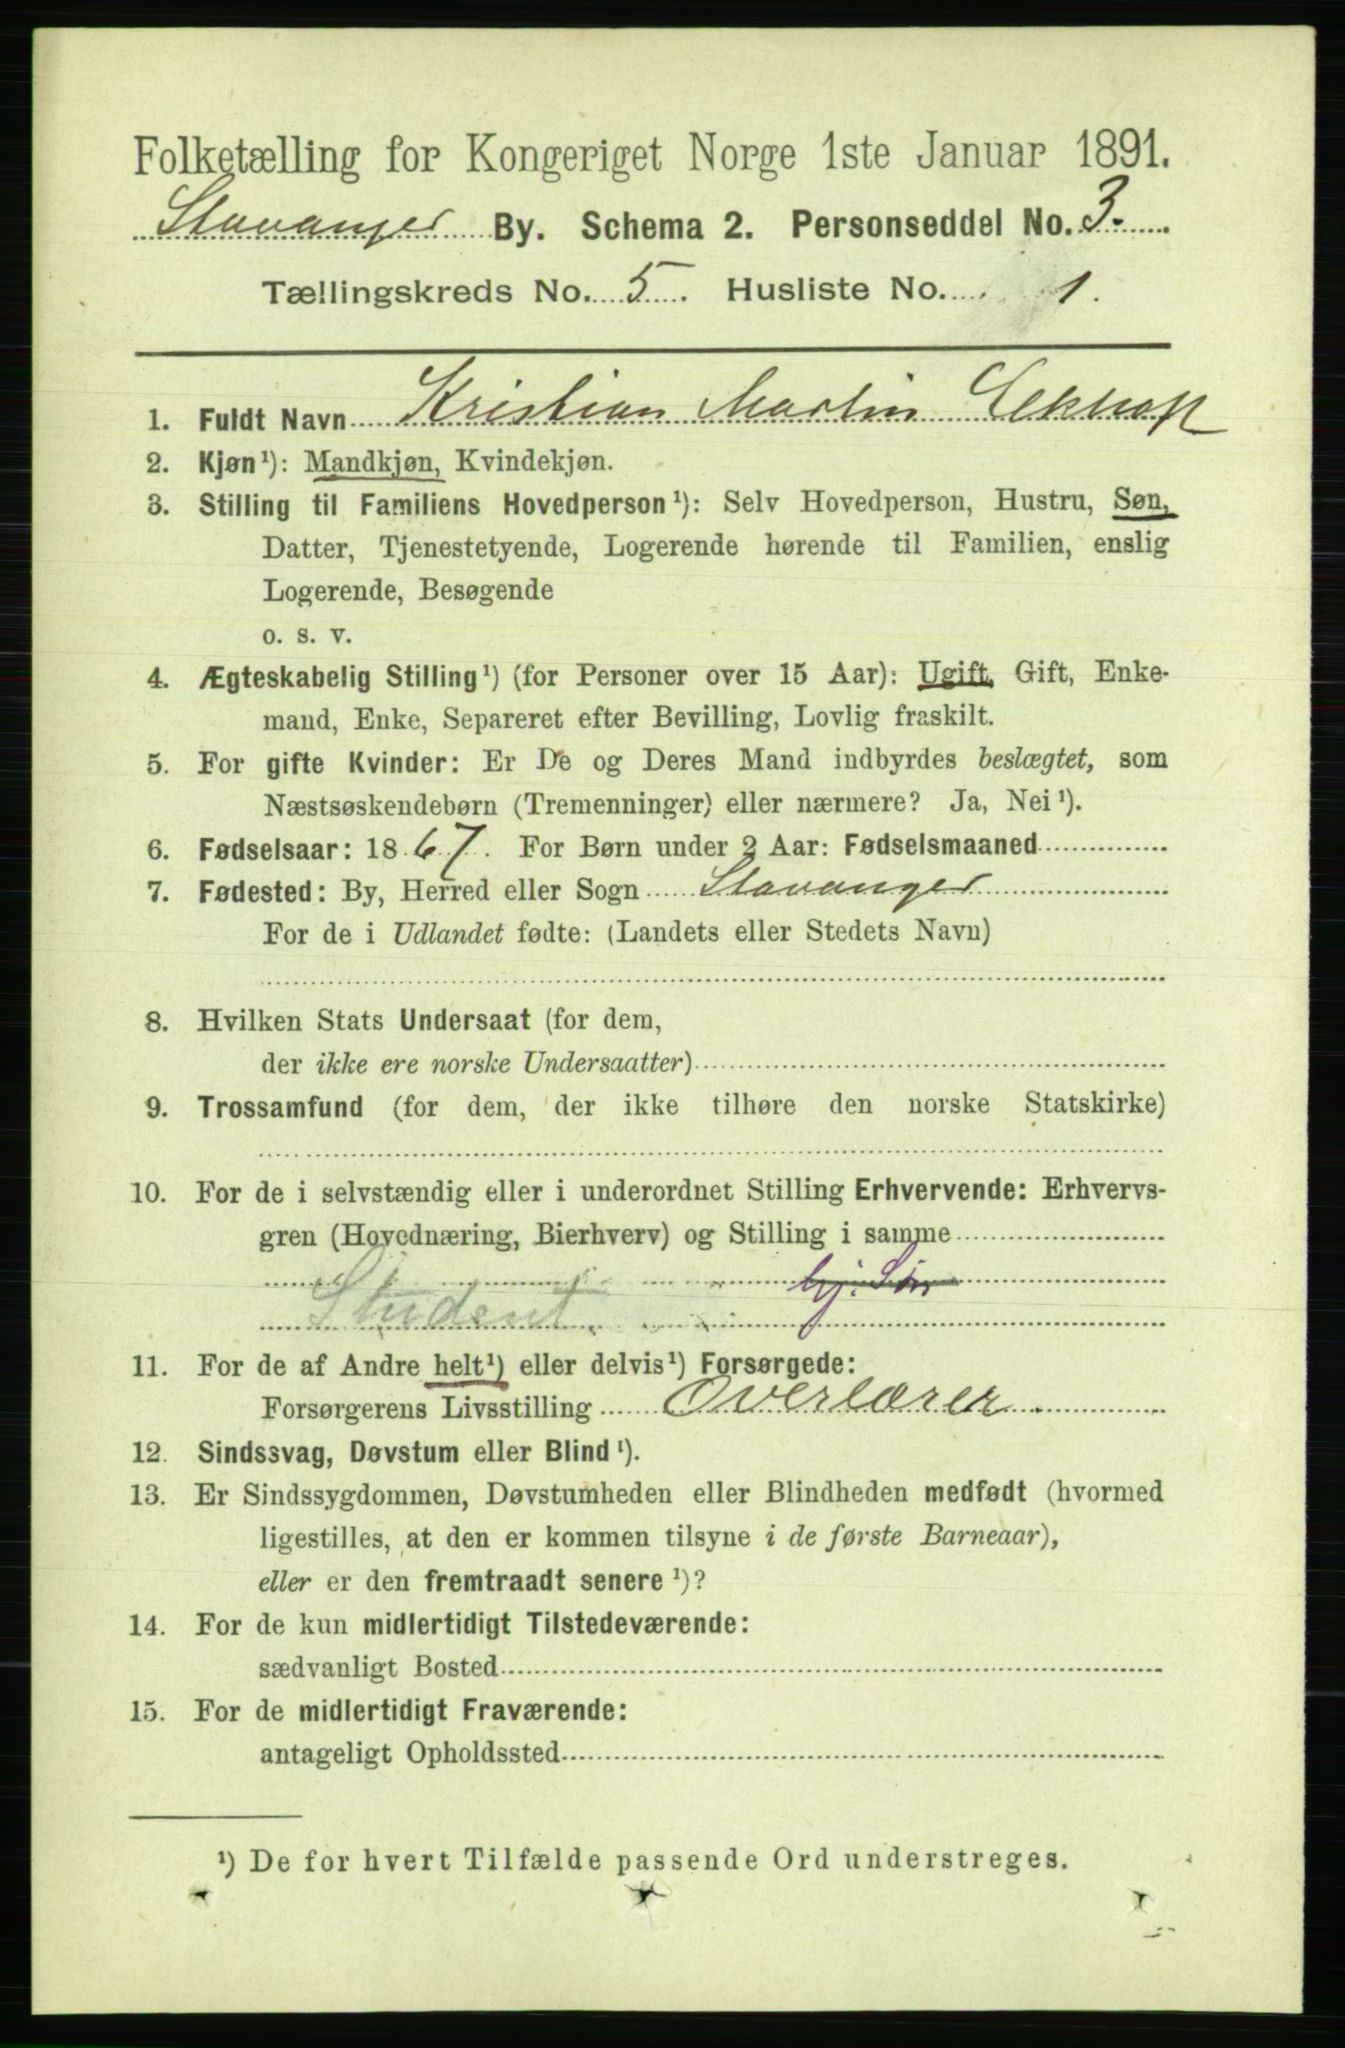 Folketælling for Kongeriget Norge 1ste Januar 1891.
Stavanger By. Schema 2. Personseddel No. 3.
Tællingskreds No. 5. Husliste No. 1.
1. Fuldt Navn Kristian Martin
2. Kjøn¹): Mandkjøn, Kvindekjøn.
3. Stilling til Familiens Hovedperson¹): Selv Hovedperson, Hustru, Søn,
Datter, Tjenestetyende, Logerende hørende til Familien, enslig
Logerende, Besøgende
o. s. v.
4. Ægteskabelig Stilling¹) (for Personer over 15 Aar): Ugift, Gift, Enke-
mand, Enke, Separeret efter Bevilling, Lovlig fraskilt.
5. For gifte Kvinder: Er De og Deres Mand indbyrdes beslægtet, som
Næstsøskendebørn (Tremenninger) eller nærmere? Ja, Nei¹).
6. Fødselsaar: 1867. For Børn under 2 Aar: Fødselsmaaned
7. Fødested: By, Herred eller Sogn Stavanger
For de i Udlandet fødte: (Landets eller Stedets Navn)
8. Hvilken Stats Undersaat (for dem,
der ikke ere norske Undersaatter)
9. Trossamfund (for dem, der ikke tilhøre den norske Statskirke)
10. For de i selvstændig eller i underordnet Stilling Erhvervende: Erhvervs-
gren (Hovednæring, Bierhverv) og Stilling i samme
hj. Søn
Student
11. For de af Andre helt¹) eller delvis¹) Forsørgede:
Forsørgerens Livsstilling Overlærer.
12. Sindssvag, Døvstum eller Blind¹).
13. Er Sindssygdommen, Døvstumheden eller Blindheden medfødt (hvormed
ligestilles, at den er kommen tilsyne i de første Barneaar),
eller er den fremtraadt senere¹)?
14. For de kun midlertidigt Tilstedeværende:
sædvanligt Bosted
15. For de midlertidigt Fraværende:
antageligt Opholdssted
¹) De for hvert Tilfælde passende Ord understreges.